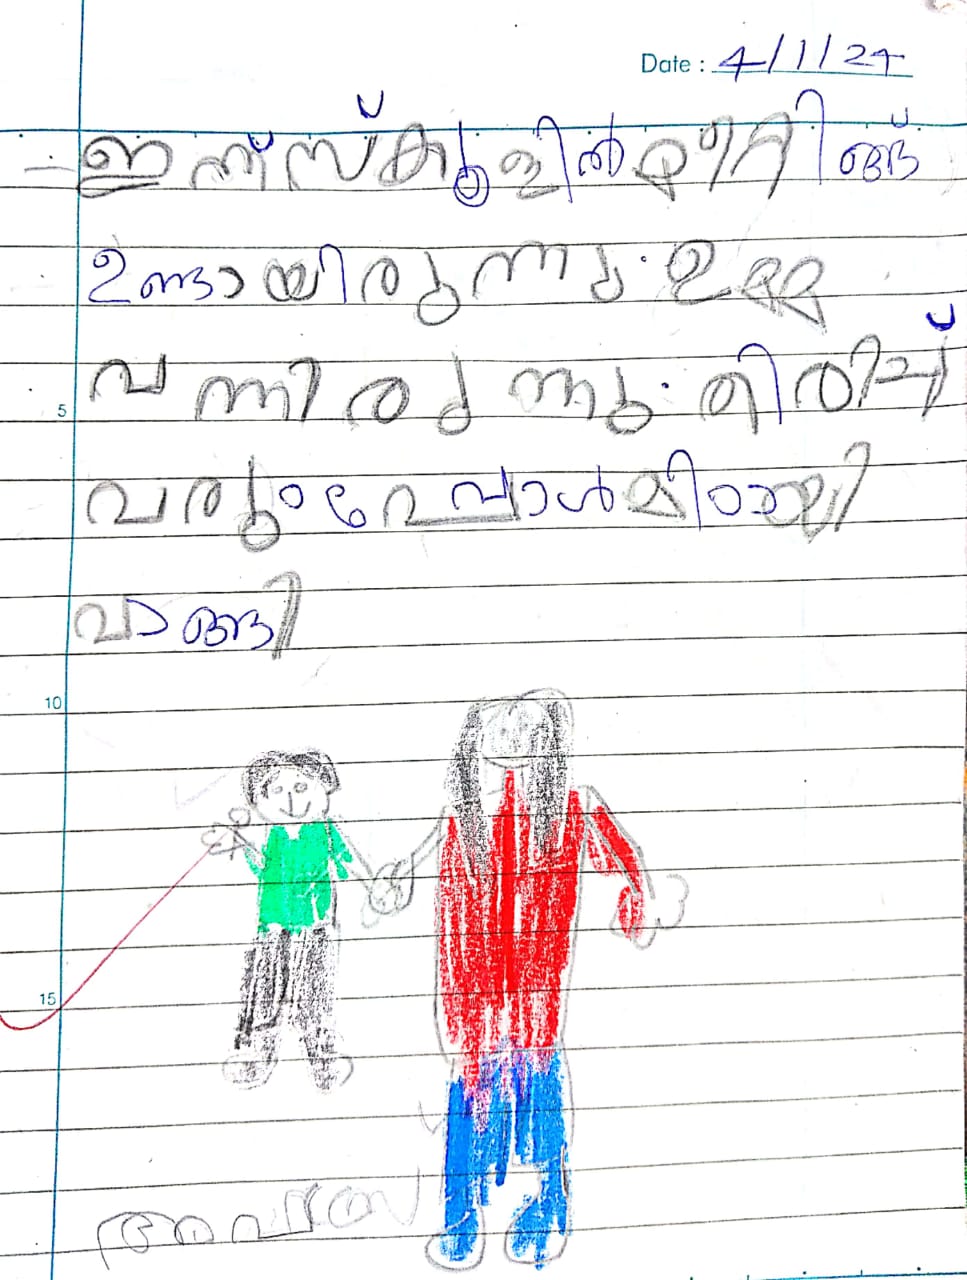 Date : 4/1/24
ഇന്ന് സ്കൂളിൽ മീറ്റിങ്ങ്
ഉണ്ടായിരുന്നു. ഉമ്മ
വന്നിരുന്നു. തിരിച്ച്
5
വരുംപ്പോൾ മിഠായി
വാങ്ങി
10
15